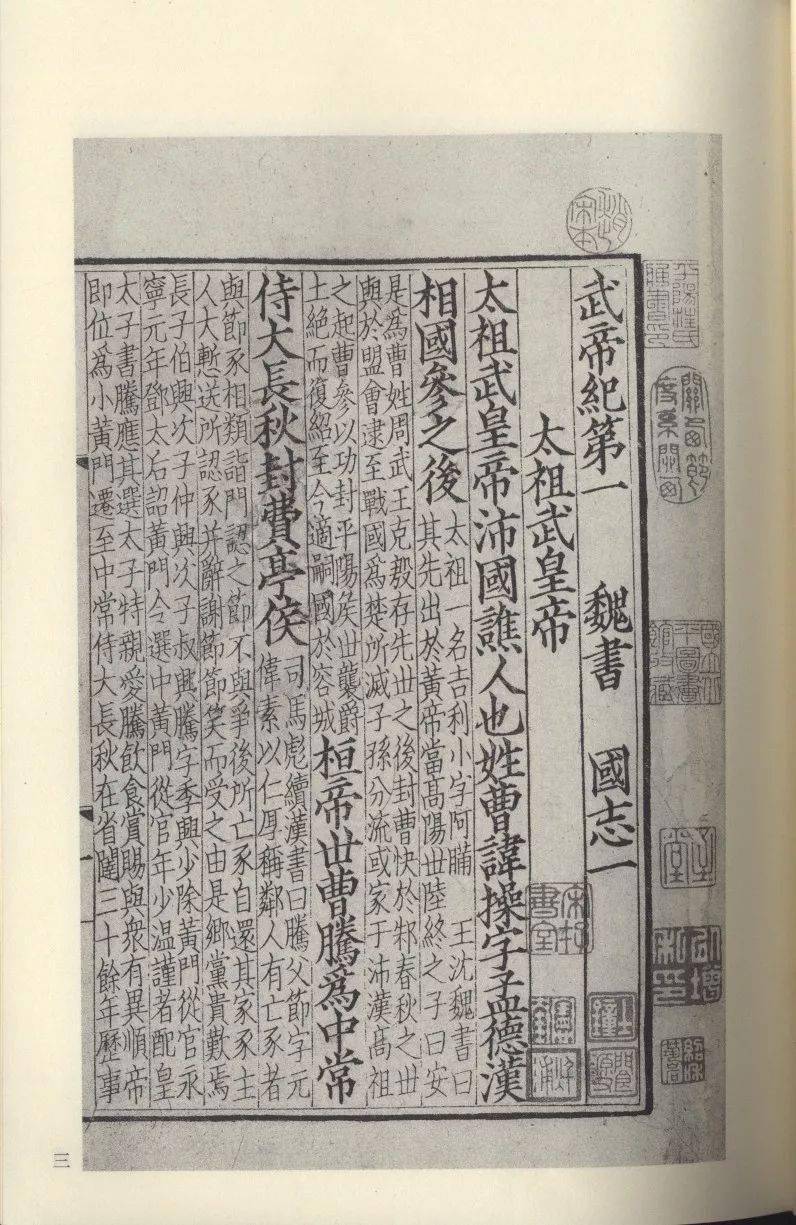 武帝紀第一 魏書 國志一
太祖武皇帝
太祖武皇帝沛國譙人也姓曹諱操字孟德漢
相國參之後
太祖一名吉利小字阿瞞 王沈魏書曰
其先出於黃帝當高陽世陸終之子曰安
是爲曹姓周武王克殷存先世之後封曹俠於邾春秋之世
與於盟會逮至戰國爲楚所滅子孫分流或家于沛漢高祖
之起曹參以功封平陽侯世襲爵
土絕而復紹至今適嗣國於容城
桓帝世曹騰爲中常
侍大長秋封費亭侯
司馬彪續漢書曰騰父節字元
偉素以仁厚稱鄰人有亡豕者
與節豕相類詣門認之節不與爭後所亡豕自還其家豕主
人大慙送所認豕并辭謝節節笑而受之由是鄉黨貴歎焉
長子伯興次子仲興次子叔興騰字季興少除黃門從官永
寧元年鄧太后詔黃門令選中黃門從官年少温謹者配皇
太子書騰應其選太子特親愛騰飲食賞賜與衆有異順帝
即位爲小黃門遷至中常侍大長秋在省闥三十餘年歷事
宋本
平陽汪氏藏書印
關西節度系關西
國立北平圖書館收藏
士鐘
閬源
三